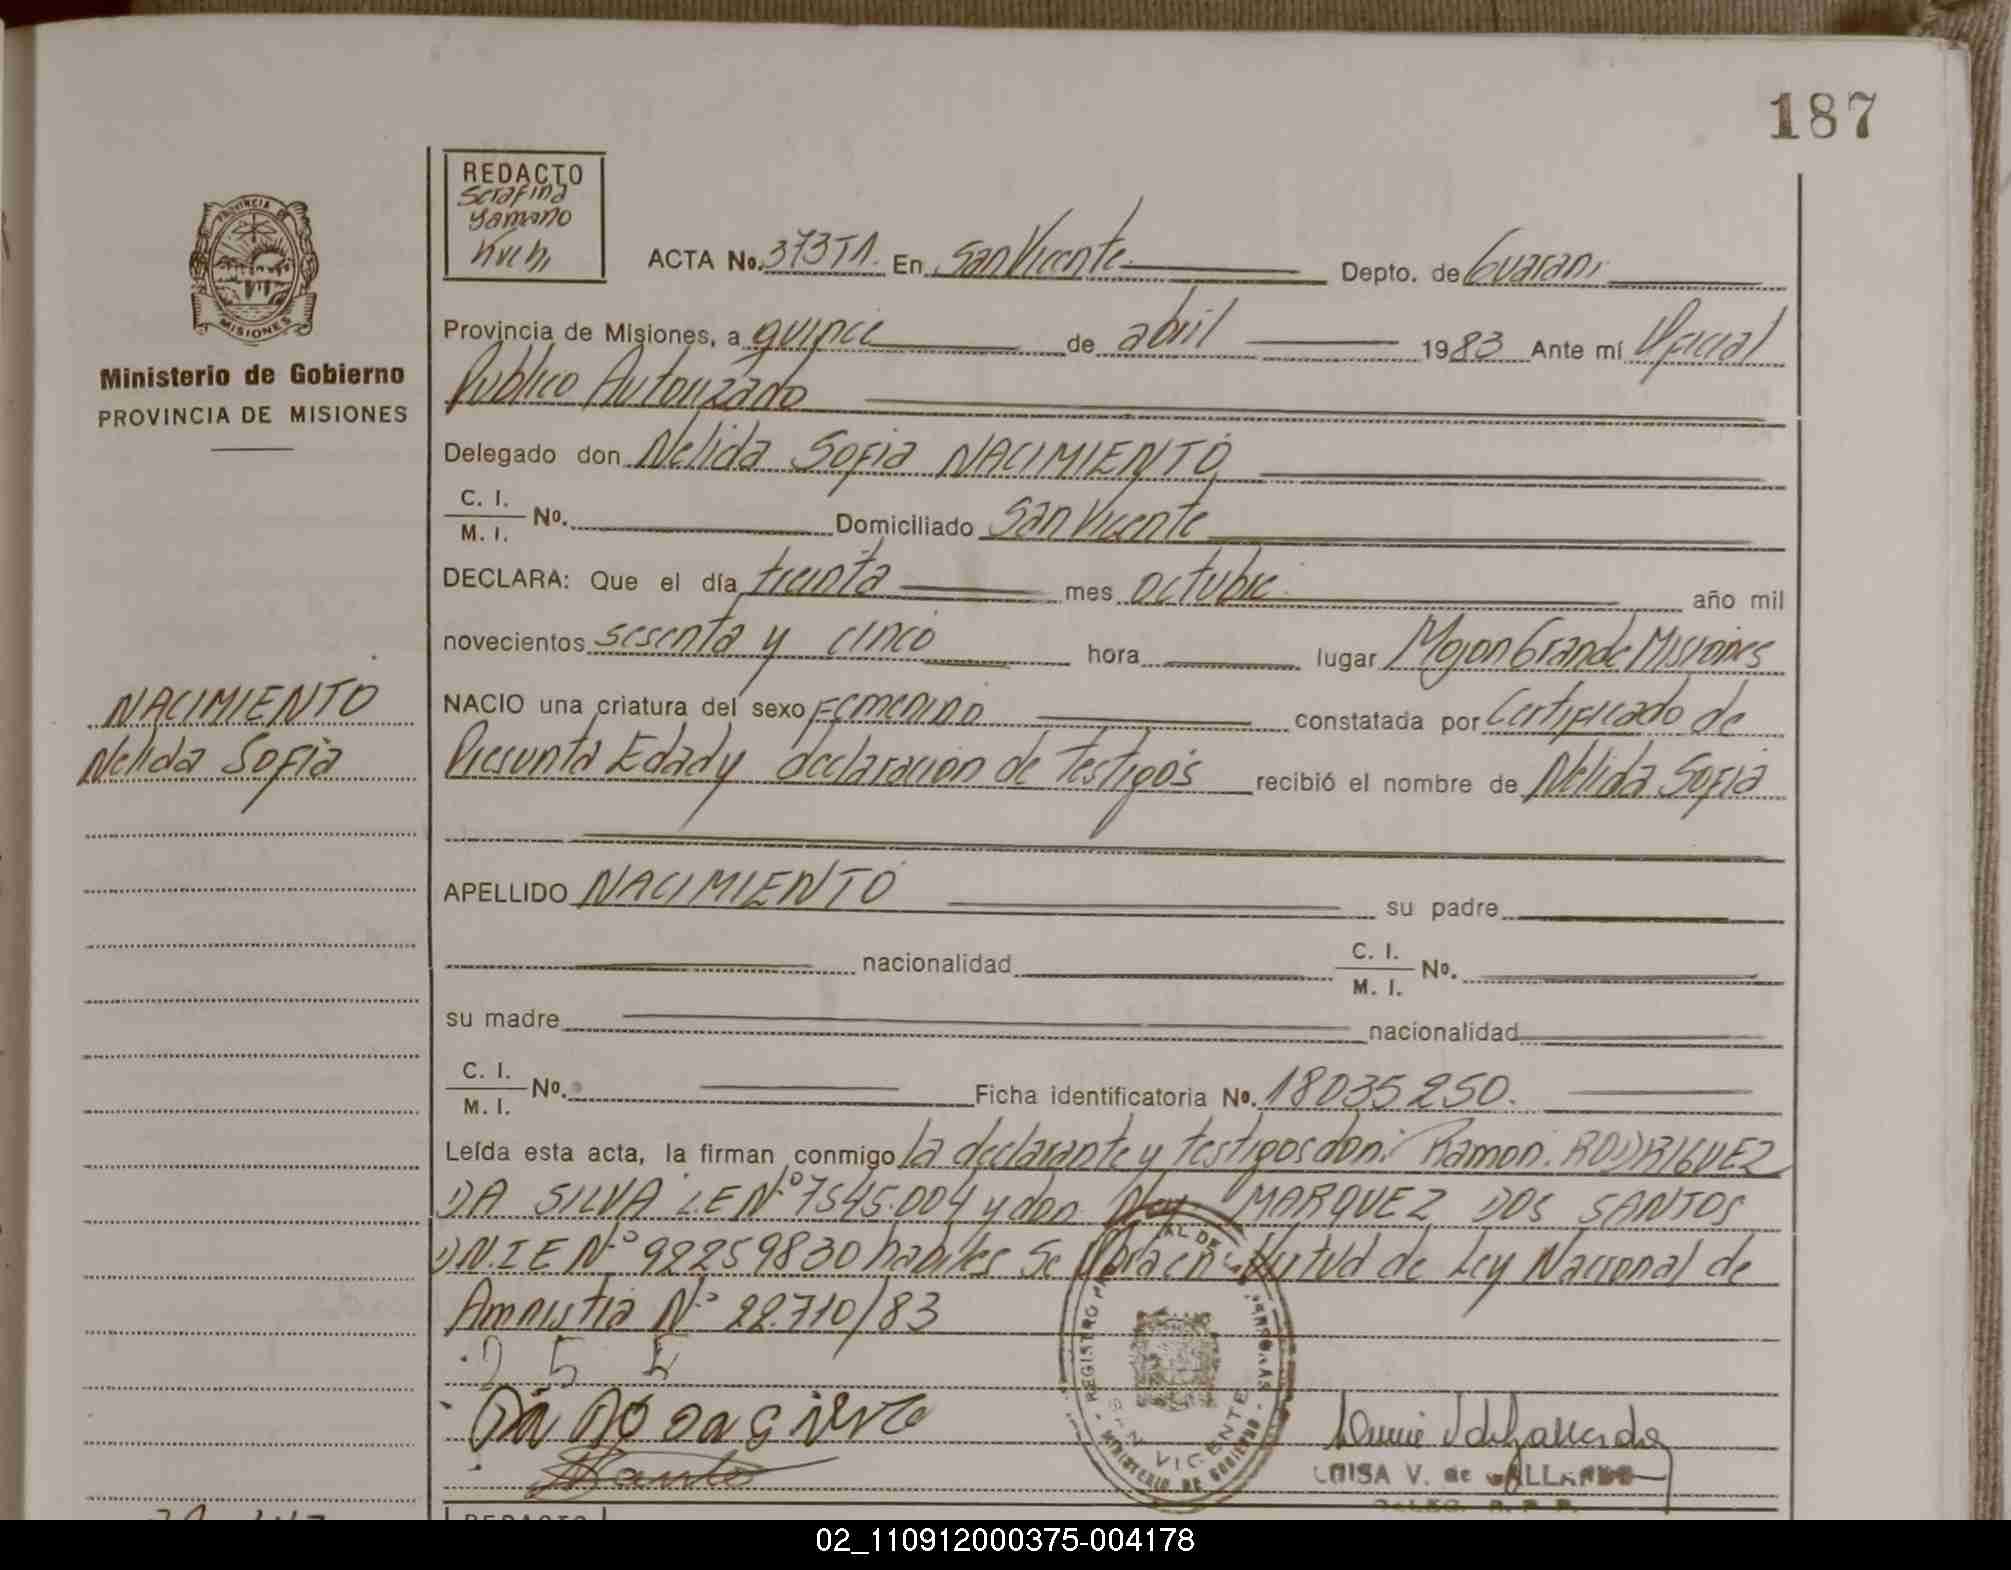 187
REDACTO
Serafina
Yamano
ACTA No. 373T1. En San Vicente Depto. de Guarani
PROVINCIA DE
MISIONES
Ministerio de Gobierno
PROVINCIA DE MISIONES
Provincia de Misiones, a quince de abril 1983 Ante mí Oficial
Publico Autorizado
Delegado don Nelida Sofia NACIMIENTO
C. I.
M. I. No. Domiciliado San Vicente
DECLARA: Que el día treinta mes octubre año mil
novecientos sesenta y cinco hora lugar Mojon Grande Misiones
NACIMIENTO
Nelida Sofia
NACIO una criatura del sexo Femenino constatada por Certificado de
Presunta Edad y declaracion de testigos recibió el nombre de Nelida Sofia
APELLIDO NACIMIENTO su padre
nacionalidad C. I.
M. I. No.
su madre nacionalidad
C. I.
M. I. No. Ficha identificatoria No. 18035250.
Leída esta acta, la firman conmigo la declarante y testigos don: Ramon. RODRIGUEZ
DA SILVA L.E Nº 7545.004 y don MARQUEZ DOS SANTOS
D.N.I E Nº 92259830 habiles Se labra en Virtud de Ley Nacional de
Amnistia Nº 22.710/83
SAN VICENTE
MINISTERIO DE GOBIERNO
LUISA V. de GALLARDO
REDACTO
02_110912000375-004178